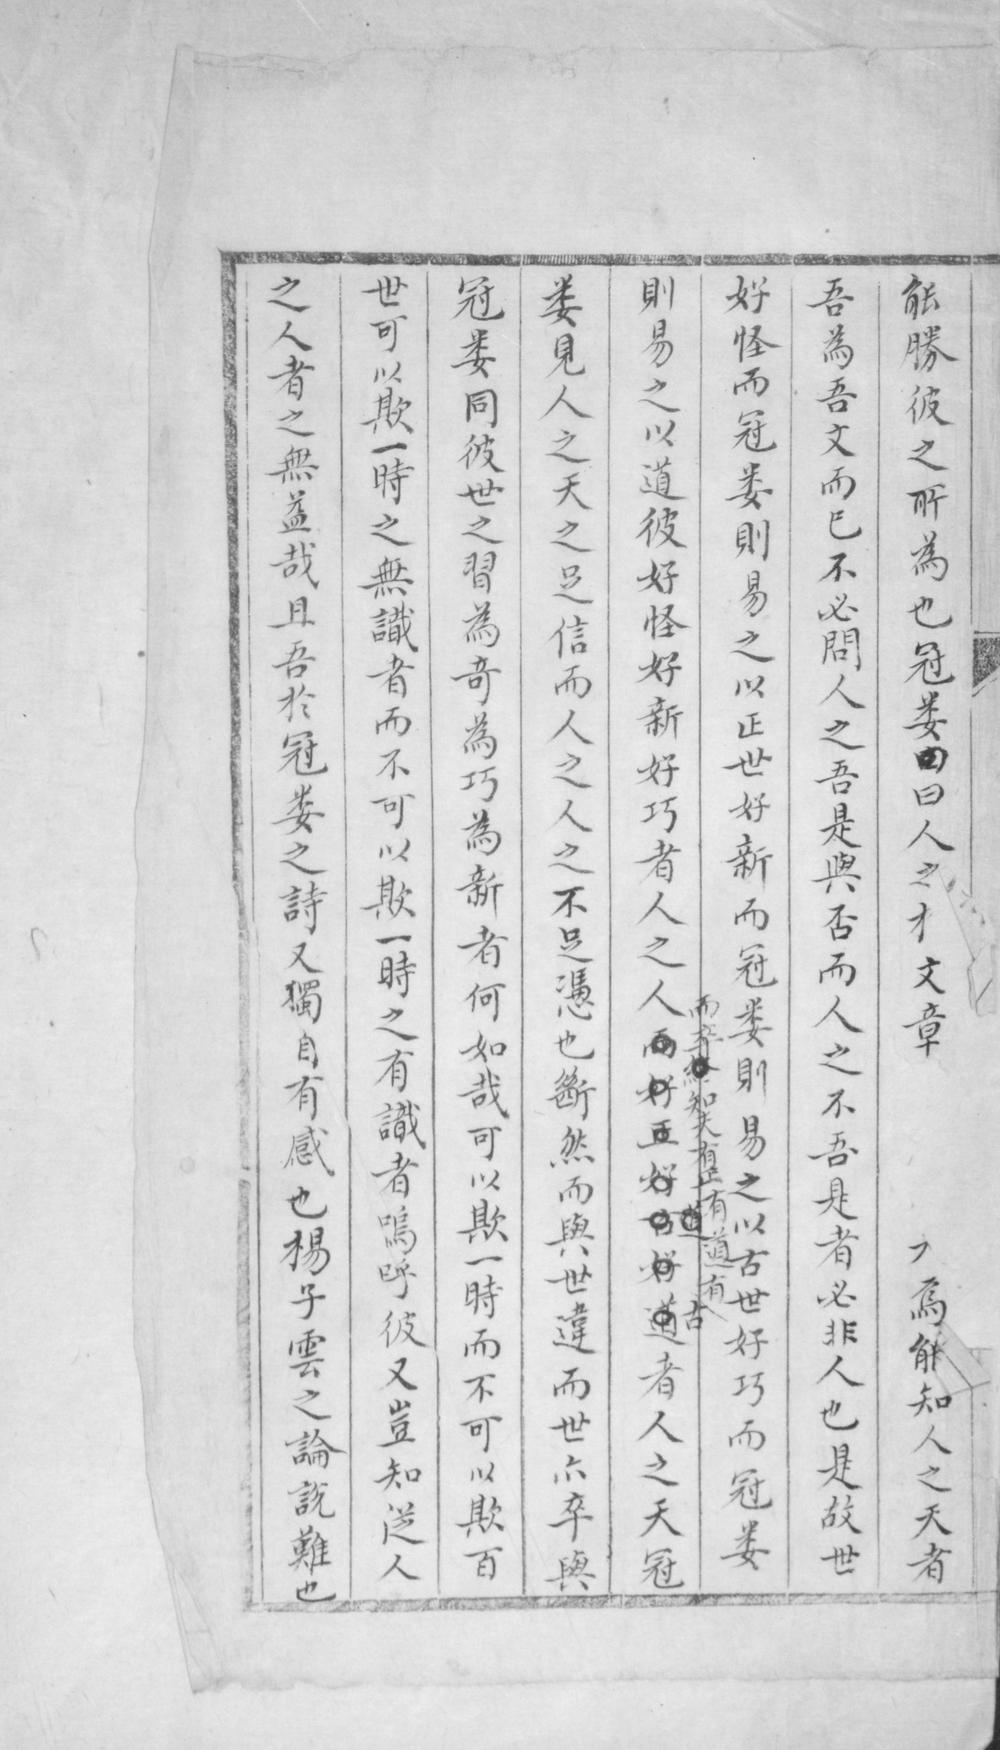 能勝彼之所為也冠婁曰曰人之才文章 為能知人之天者
吾為吾文而已不必問人之吾是與否而人之不吾是者必非人也是故世
好怪而冠婁則易之以正世好新而冠婁則易之以古世好巧而冠婁
而卒終知夫有正有道有古
則易之以道彼好怪好新好巧者人之人而好正好古好道者人之天冠
婁見人之天之足信而人之人之不足憑也斷然而與世違而世亦卒與
冠婁同彼世之習為奇為巧為新者何如哉可以欺一時而不可以欺百
世可以欺一時之無識者而不可以欺一時之有識者嗚呼彼又豈知從人
之人者之無益哉且吾於冠婁之詩又獨自有感也楊子雲之論說難也